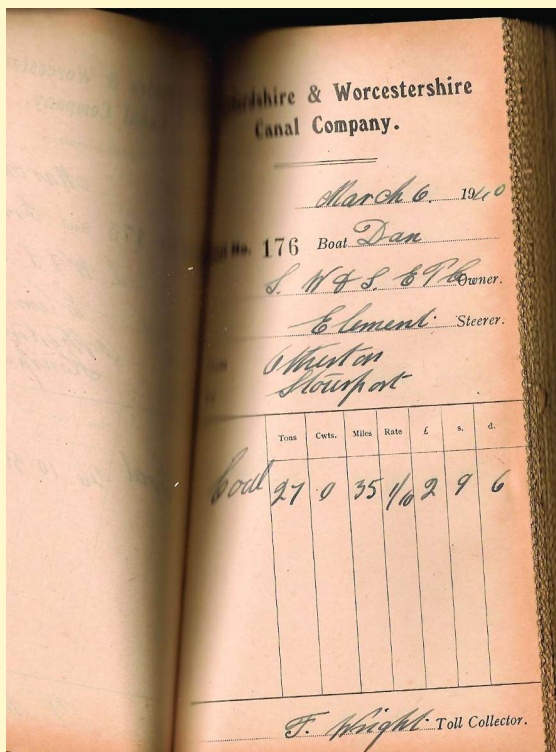 & Worcestershire
Canal Company.
March 6. 1940
No. 176 Boat Dan
S. W & S. E P Co Owner.
Element Steerer.
Otherton
Stourport
Tons Cwts. Miles Rate £ s. d.
Coal 27 0 35 1/10 2 9 6
F. Wright Toll Collector.